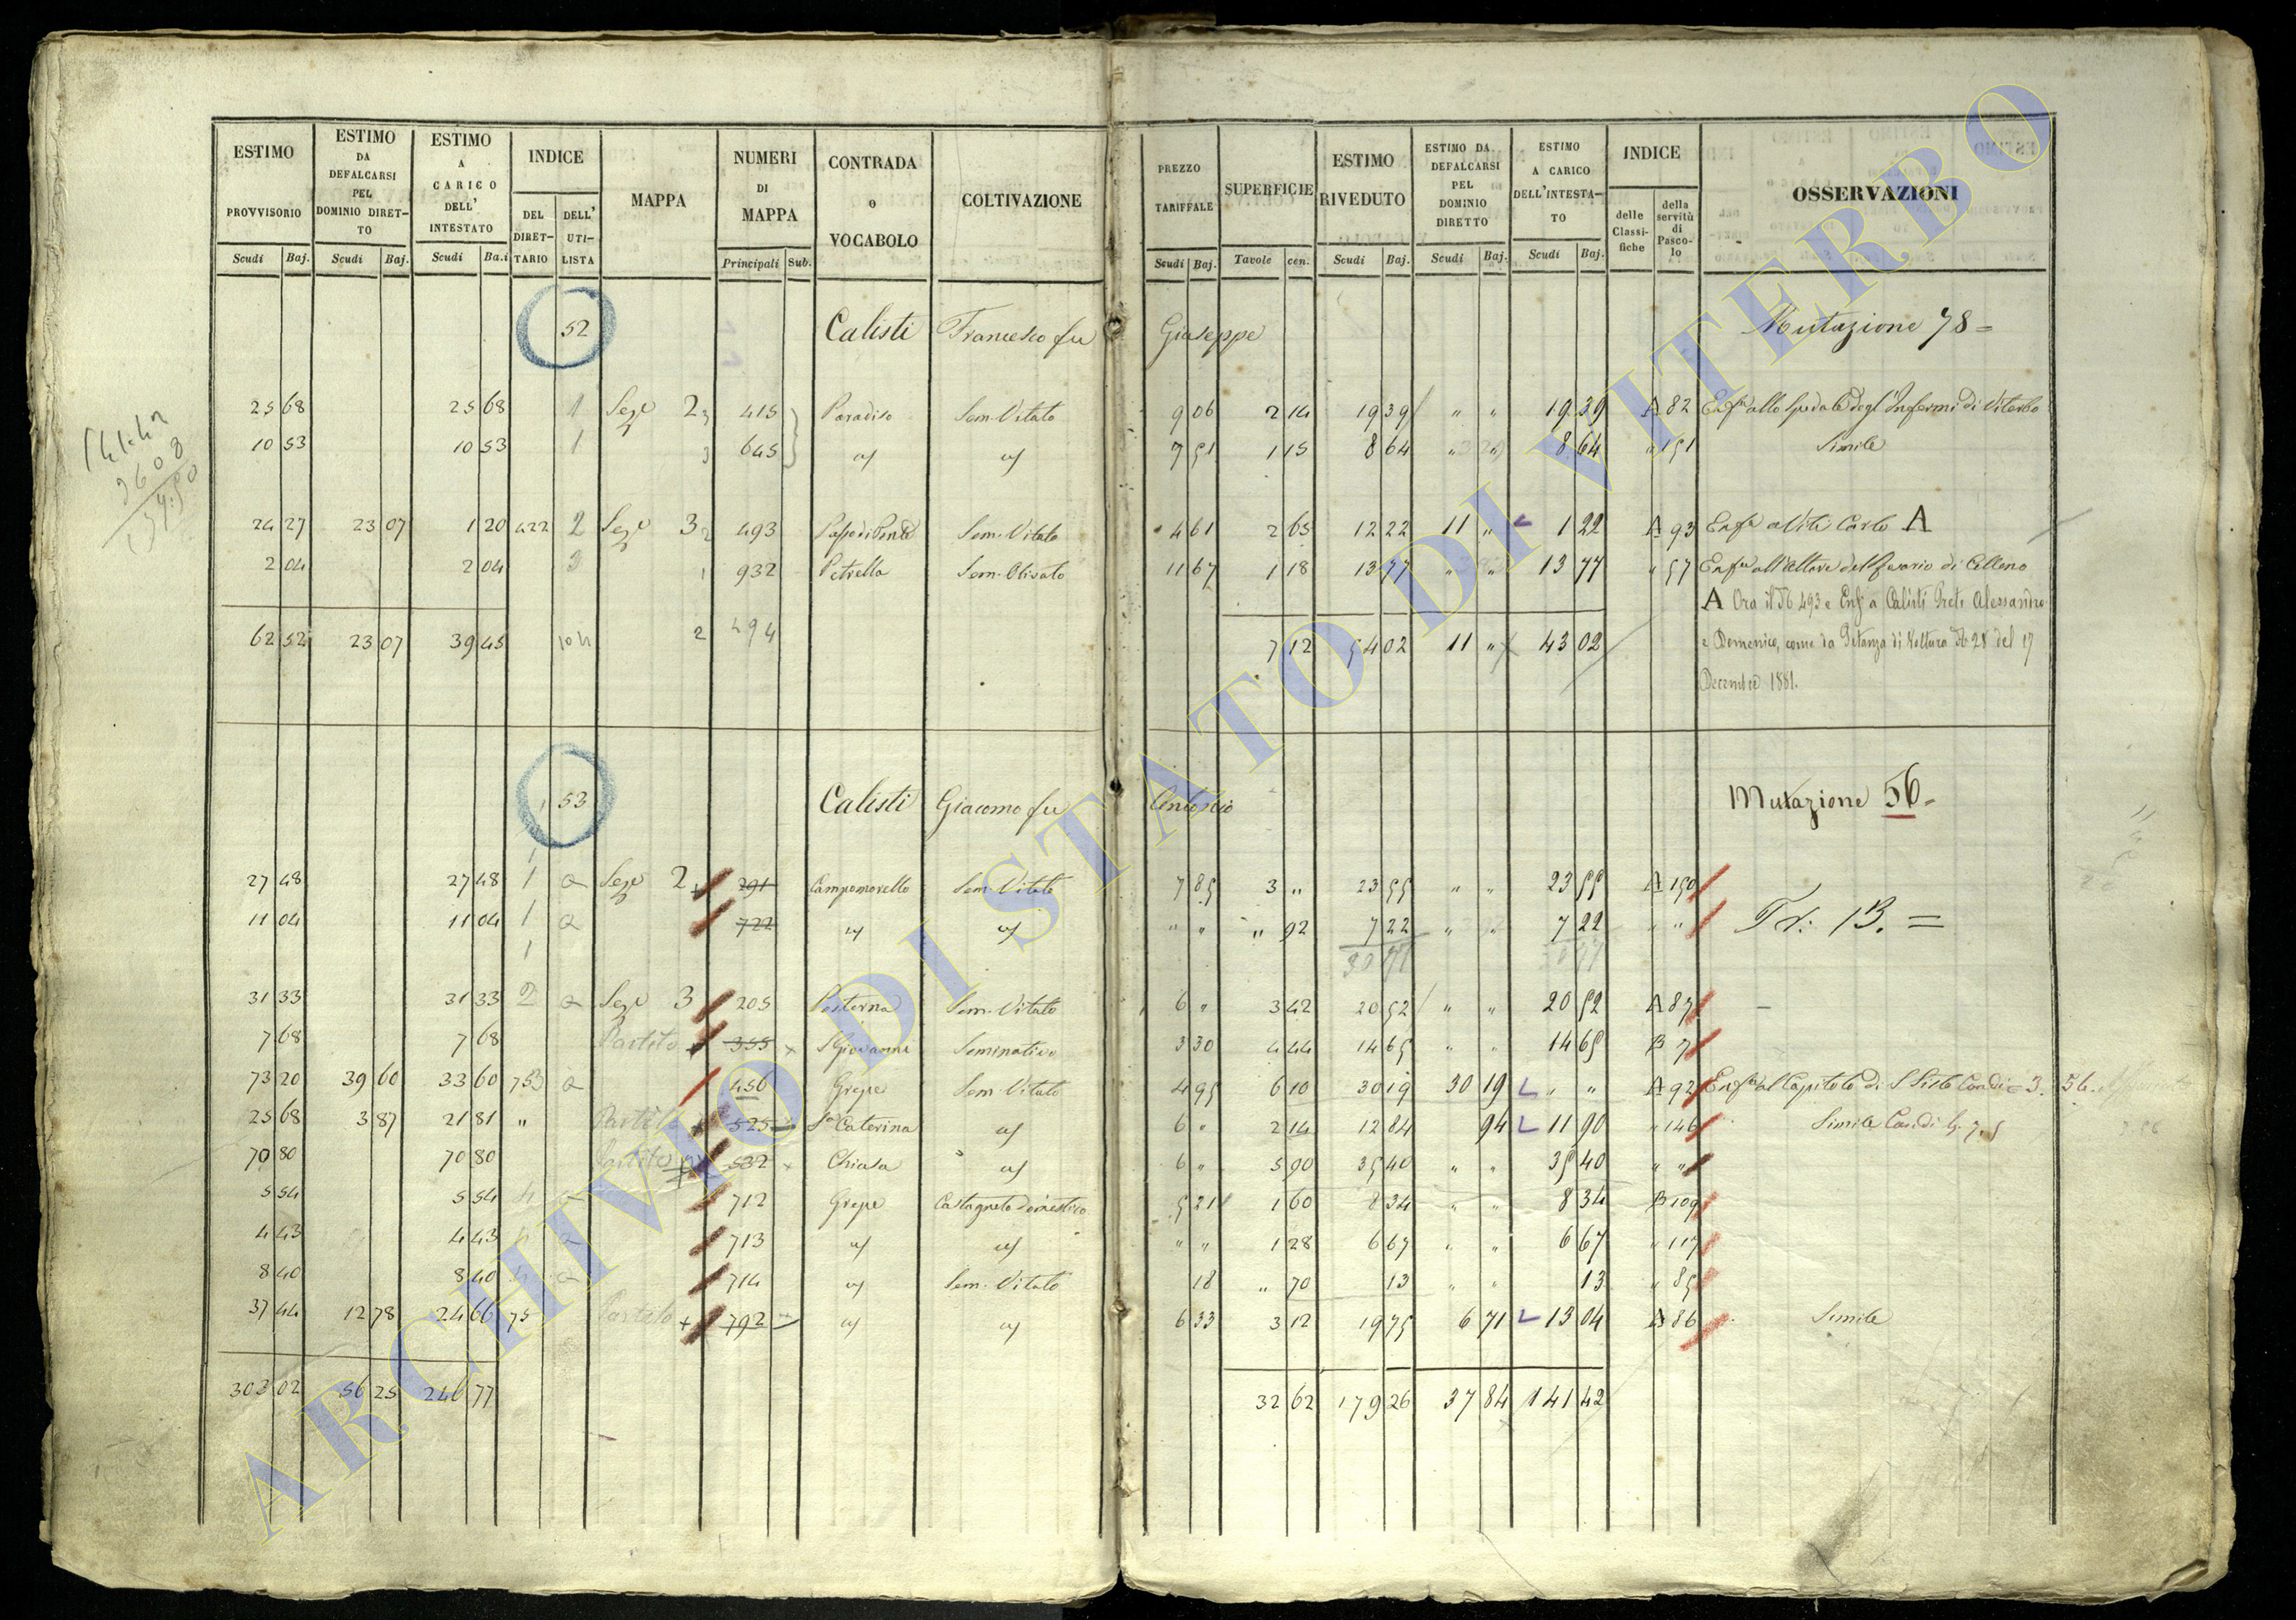 ESTIMO PROVVISORIO Scudi Baj.
ESTIMO DA DEFALCARSI PEL DOMINIO DIRET-TO Scudi Baj.
ESTIMO A CARICO DELL' INTESTATO Scudi Ba.i
INDICE DEL DIRET-TARIO DELL' UTI-LISTA
MAPPA
NUMERI DI MAPPA Principali Sub.
CONTRADA o VOCABOLO
COLTIVAZIONE
PREZZO TARIFFALE Scudi Baj.
SUPERFICIE Tavole cen.
ESTIMO RIVEDUTO Scudi Baj.
ESTIMO DA DEFALCARSI PEL DOMINIO DIRETTO Scudi Baj.
ESTIMO A CARICO DELL'INTESTA-TO Scudi Baj.
INDICE delle Classi-fiche della servitù di Pasco-lo
OSSERVAZIONI
52 Calisti Francesco fu Giuseppe Mutazione 78 =
25 68 25 68 1 Sez.e 2 3 415 Paradiso Sem. Vitato 9 06 2 14 19 39 " " 19 39 A 82 Enf.a allo Spedale degl'Infermi di Viterbo
10 53 10 53 1 3 645 7 51 1 15 8 64 " " 8 64 " 151 Simile
24 27 23 07 1 20 422 2 Sez.e 3 2 493 Sem. Vitato 4 61 2 65 12 22 11 " 1 22 A 93 Enf.a a Viti Carlo A
2 04 2 04 3 1 932 Petrella Sem. Olivato 11 67 1 18 13 77 " " 13 77 " 57 Enf.a all'Altare del Rosario di Celleno
A Ora il N. 493 è Enf. a Calisti Preti Alessandro
62 52 23 07 39 45 2 494 7 12 54 02 11 " 43 02 e Domenico, come da Istanza di Voltura N. 28 del 17
Decembre 1881.
53 Calisti Giacomo fu Antonio Mutazione 56 =
27 48 27 48 1 Sez.e 2 291 Campomorello Sem. Vitato 7 85 3 " 23 55 " " 23 55 A 150
11 04 11 04 1 722 " " " 92 7 22 " " 7 22 " " Tr: 13. =
1 30 77
31 33 31 33 2 Sez.e 3 205 Posterna Sem. Vitato 6 " 3 42 20 52 " " 20 52 A 87
7 68 7 68 Partito 355 S Giovanni Seminativo 3 30 4 44 14 65 " " 14 65 B 7
73 20 39 60 33 60 753 456 Grepe Sem Vitato 4 95 6 10 30 19 30 19 " " A 92 Enf.a al Capitolo di S Sisto
25 68 3 87 21 81 " Partito 525 S.a Caterina 6 " 2 14 12 84 94 11 90 " 146 Simile
70 80 70 80 Partito 532 Chiusa 6 " 5 90 35 40 " " 35 40 " "
5 54 5 54 712 Grepe Castagneto Domestico 5 21 1 60 8 34 " " 8 34 B 109
4 43 4 43 713 " " 1 28 6 67 " " 6 67 " 117
8 40 8 40 714 Sem. Vitato 18 " 70 13 " " 13 " 85
37 44 12 78 24 66 75 Partito 792 6 33 3 12 19 75 6 71 13 04 A 86 Simile
303 02 56 25 246 77 32 62 179 26 37 84 141 42
ARCHIVIO DI STATO DI VITERBO